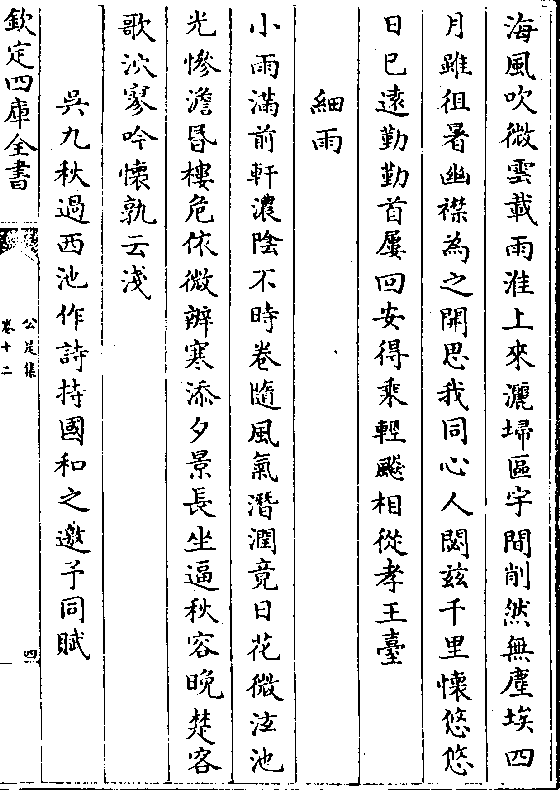 海風吹微雲載雨淮上來灑埽區宇間削然無塵埃四
月雖徂暑幽襟為之開思我同心人閟兹千里懷悠悠
日已遠勤勤首屢回安得乘輕颷相從孝王臺
細雨
小雨滿前軒濃陰不時卷隨風氣潛潤竟日花微泫池
光慘澹昏樓危依微辨寒添夕景長坐逼秋容晚楚客
歌泬寥吟懷孰云淺
吳九秋過西池作詩持國和之邀予同賦
欽定四庫全書
公是集
卷十二
四